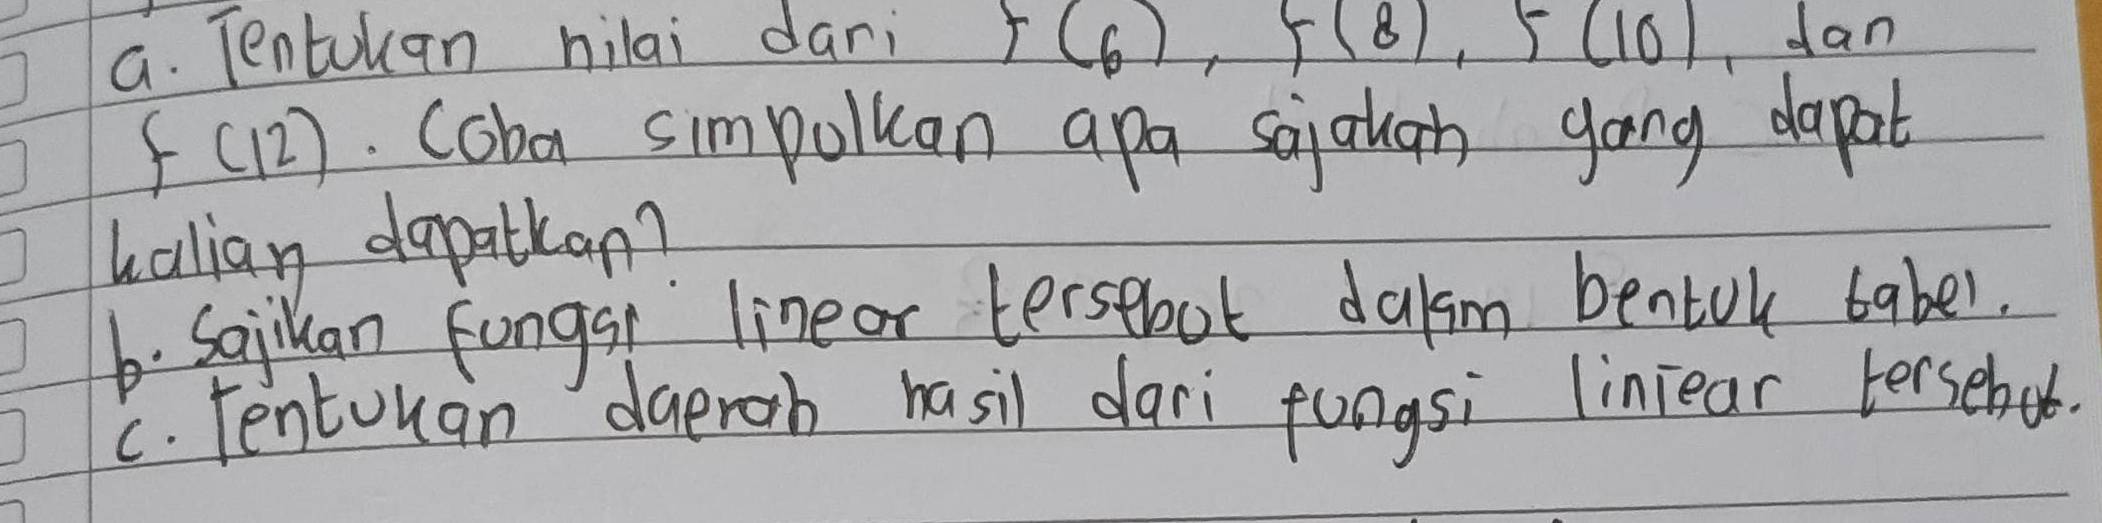 a. Tentukan nilai dari f (6), f (8), f (10), dan
f (12). Coba simpulkan apa sajakah yang dapat
kalian dapatkan?
b. Sajikan fungsi linear tersebut dalam bentuk tabel.
c. Tentukan daerah hasil dari fungsi liniear tersebut.